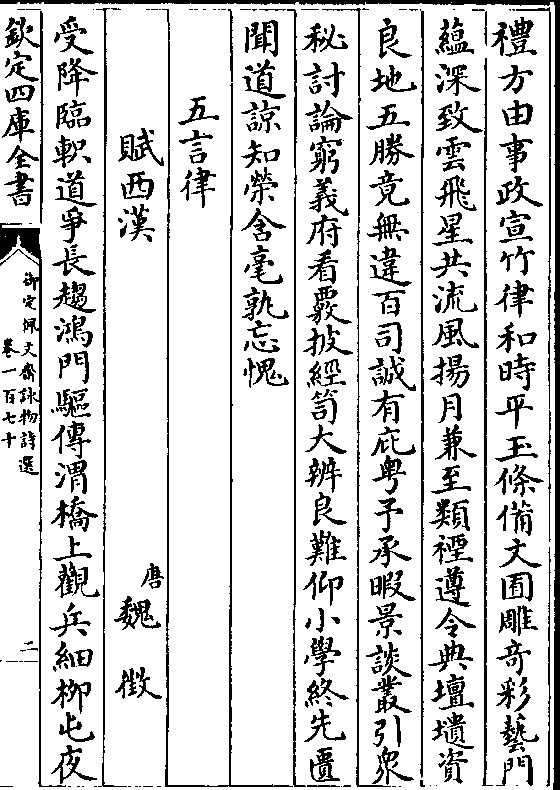 禮方由事政宣竹律和時平玉條備文囿雕奇彩藝門
蘊深致雲飛星共流風揚月兼至類禋遵令典壇壝資
良地五勝竟無違百司誠有庇粤予承暇景談叢引衆
秘討論窮義府看覈披經笥大辨良難仰小學終先匱
聞道諒知榮含毫孰忘愧
五言律
賦西漢
唐魏徵
受降臨軹道爭長趨鴻門驅傳渭橋上觀兵細柳屯夜
欽定四庫全書
御定佩文齋詠物詩選
卷一百七十
二